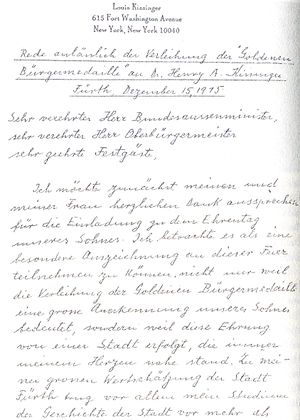 Louis Kissinger
615 Fort Washington Avenue
New York, New York 10040
Rede anläslich der Verleihung der "Goldenen
Bürgermedaille" an Dr. Henry A. Kissinger
Fürth, Dezember 15, 1975
Sehr verehrter Herr Bundesaussenminister,
sehr verehrter Herr Oberbürgermeister
sehr geehrte Festgäste,
Ich möcht zunächst meinen und
meiner Frau herzlichen Dank aussprechen
für die Einladung zu dem Ehrentag
unseres Sohnes. Ich betrachte es als eine
besondere Auszeichnung an dieser Feier
teilnehmen zu können, nicht nur weil
die Verleihung der Goldenen Bürgermedaille
eine grose Anerkennung unseres Sohnes
bedeutet, sondern weil diese Ehrung
von einer Stadt erfolgt, die immer
meinem Herzen nahe stand. Zu mei-
ner grossen Wertschäzung der Stadt
Fürth trug vor allem mein Studium
der Geschichte der Stadt vor mehr als